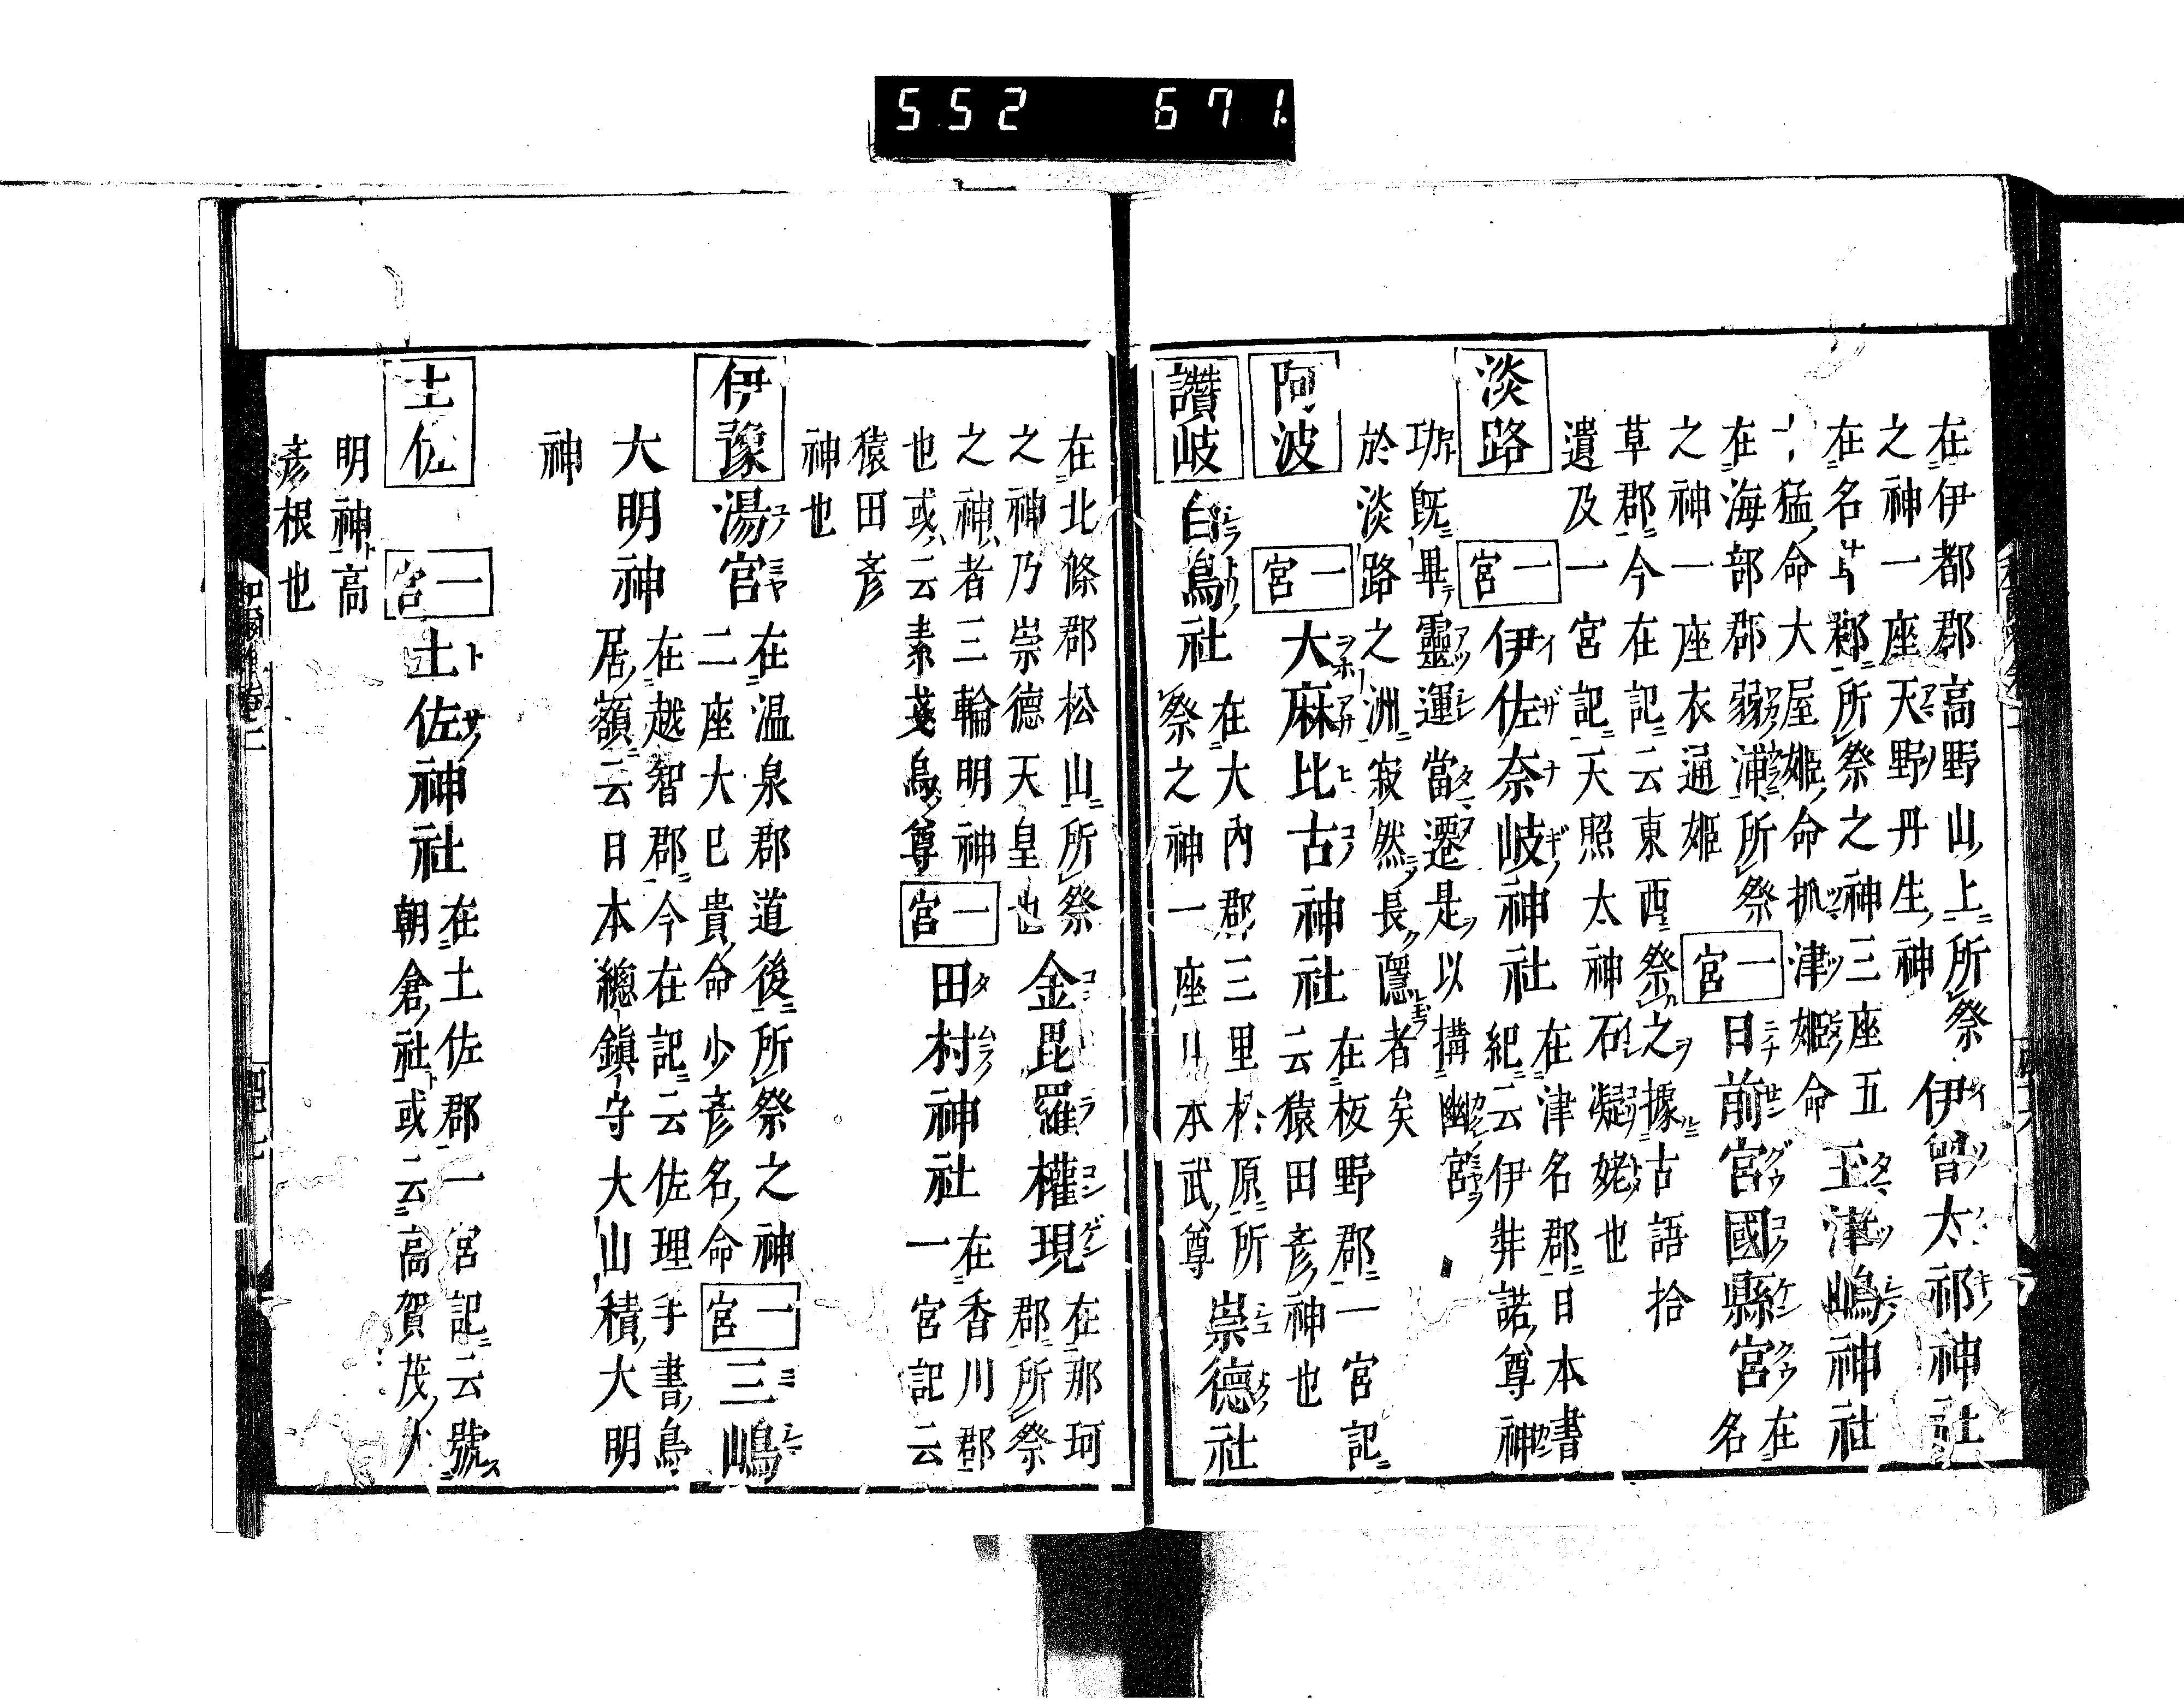 552 671
在伊都郡高野山上所祭
之神一座天野丹生神
伊曾太祁神社
在名草郡所祭之神三座五
十猛命大屋姫命抓津姫命
玉津嶋神社
在海部郡弱浦所祭
之神一座衣通姫
一宮
日前宮國縣宮
在名
草郡今在記云東西祭之據古語拾
遺及一宮記天照太神石凝姥也
淡路
一宮
伊佐奈岐神社
在津名郡日本書
紀云伊弉諾尊神
功既畢靈運當遷是以構幽宮
於淡路之洲寂然長隱者矣
阿波
一宮
大麻比古神社
在板野郡一宮記
云猿田彦神也
讚岐
白鳥社
在大内郡三里松原所
祭之神一座日本武尊
崇德社
在北條郡松山所祭
之神乃崇德天皇也
金毘羅權現
在那珂
郡所祭
之神者三輪明神
也或云素戔烏尊
一宮
田村神社
在香川郡
一宮記云
猿田彦
神也
伊豫
湯宮
在温泉郡道後所祭之神
二座大已貴命少彦名命
一宮
三嶋
大明神
在越智郡今在記云佐理手書鳥
居額云日本總鎮守大山積大明
神
土佐
一宮
土佐神社
在土佐郡一宮記云號
朝倉社或云高賀茂大
明神高
彦根也